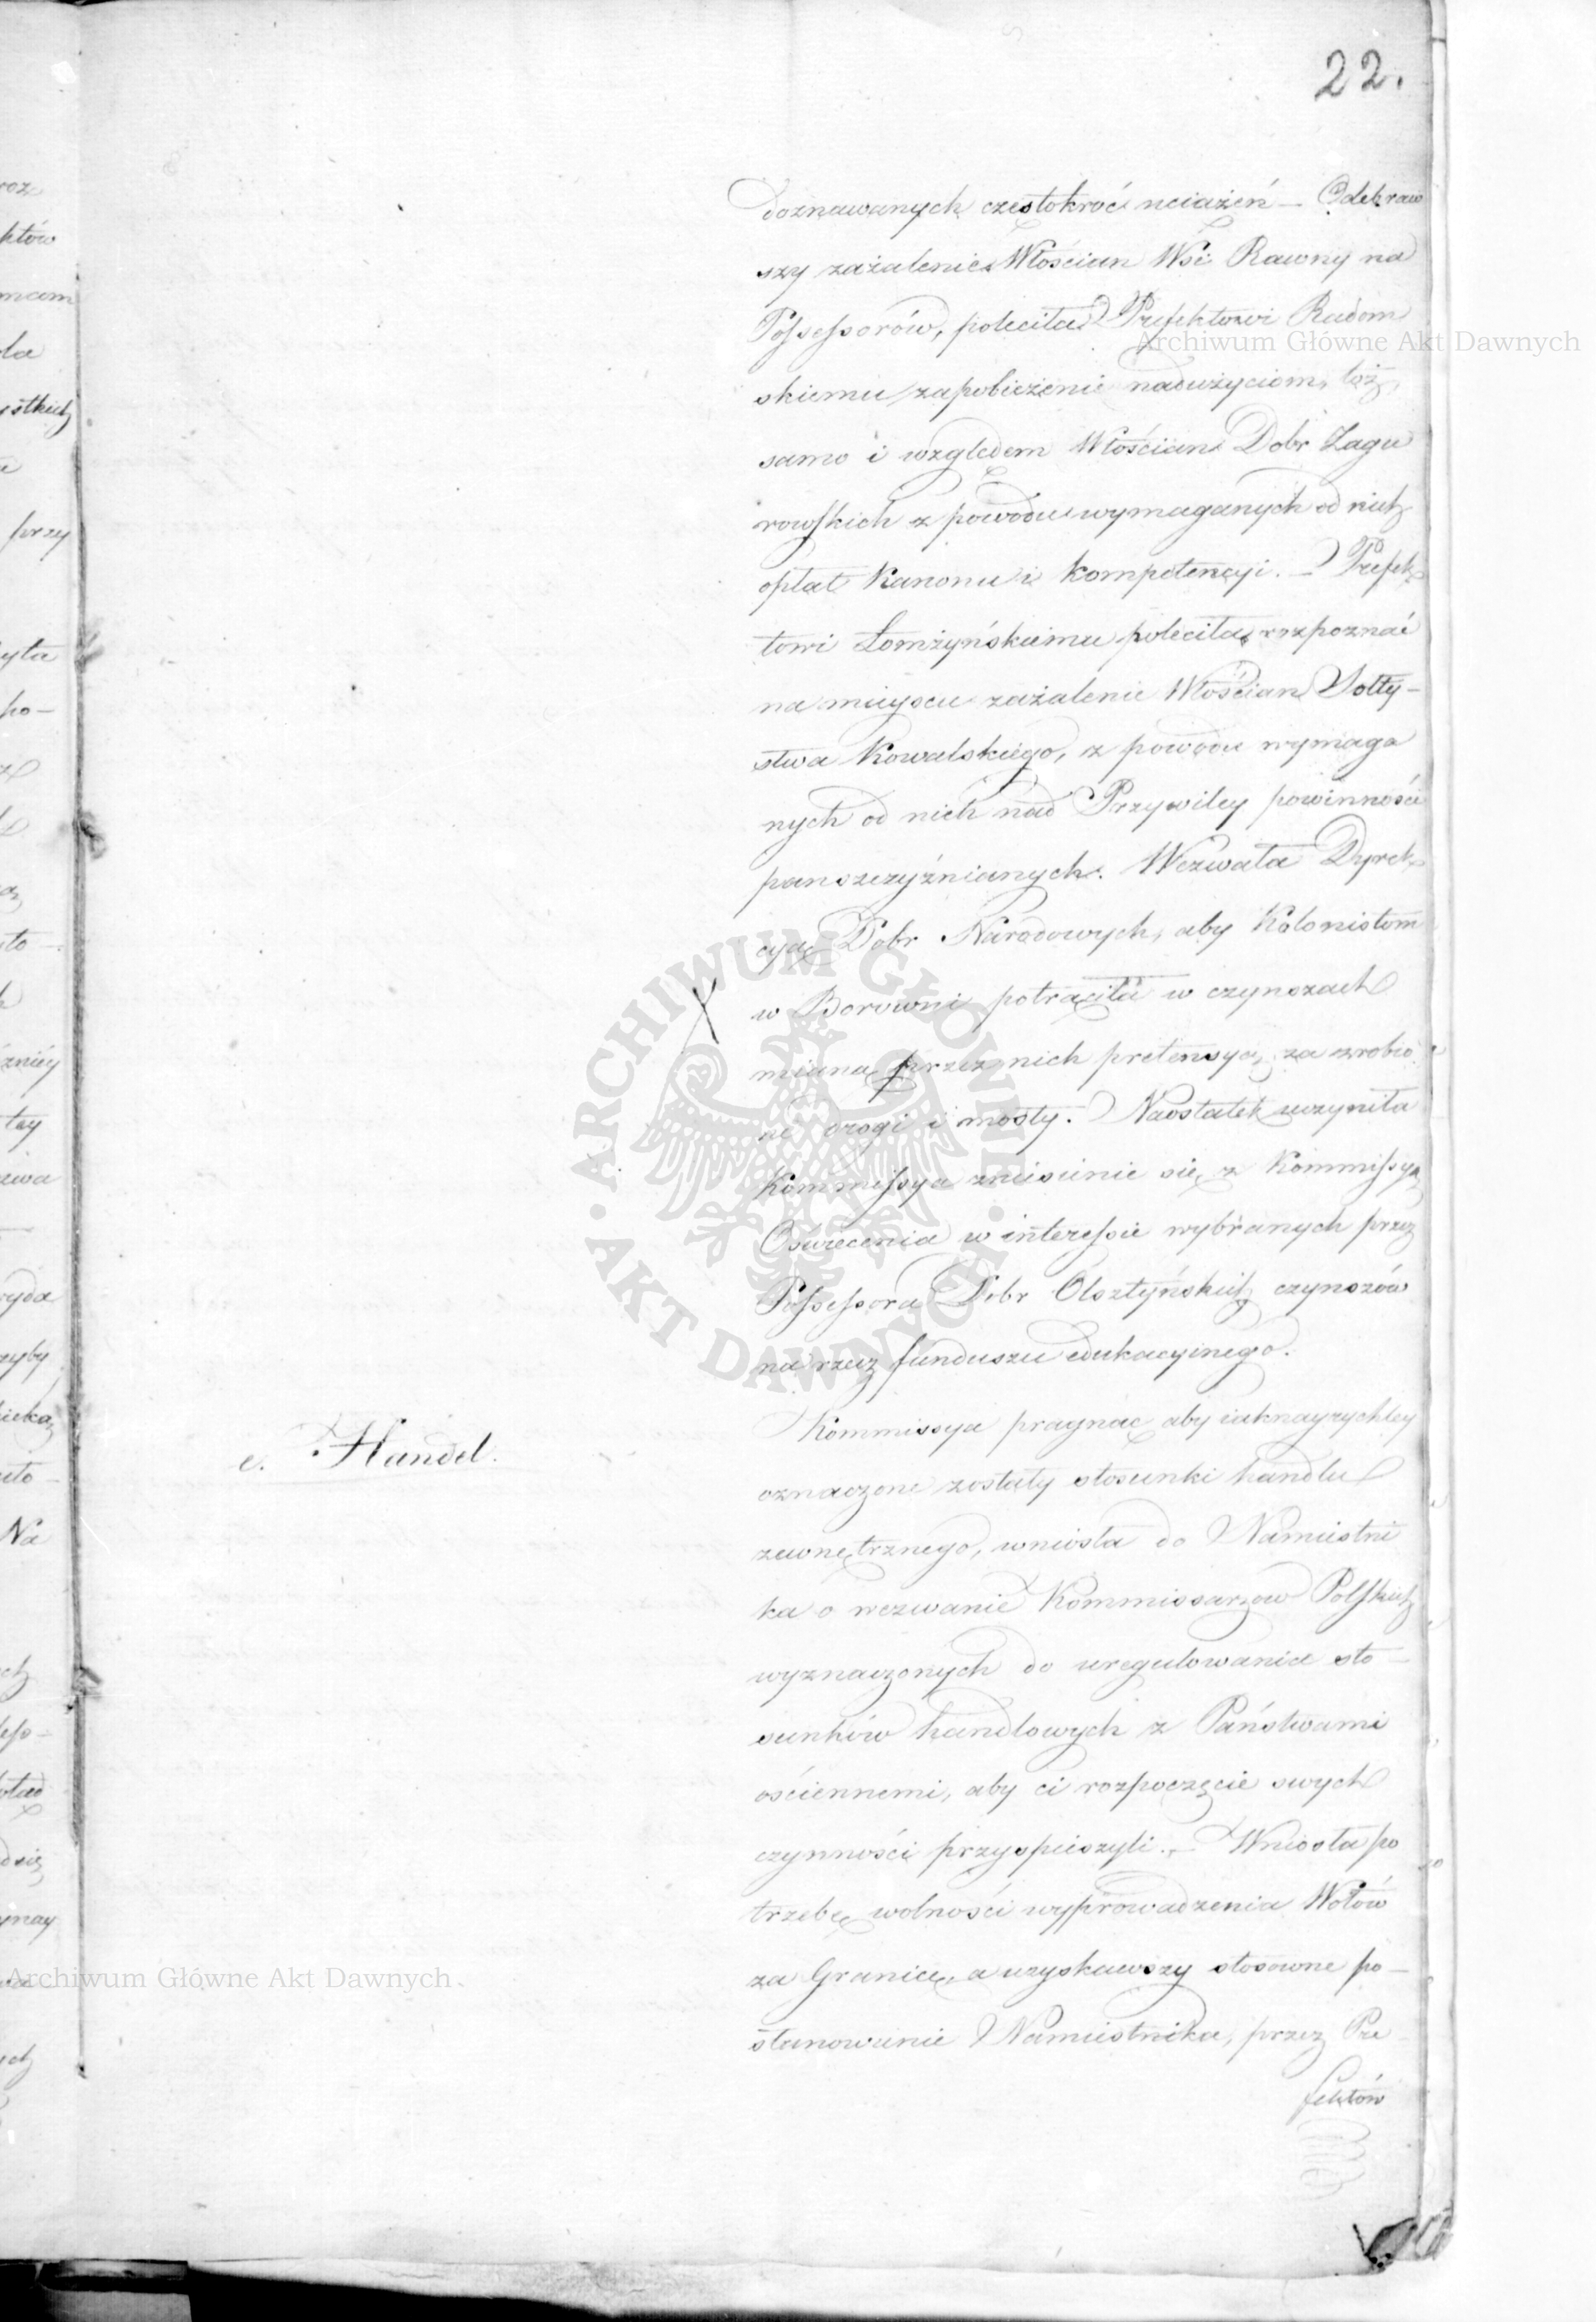 22.
doznawanych częstokroć uciążeń — Odebraw
szy zażalenie Włościan Wsi Rawny na
Possessorów, poleciła Prefektowi Radom
skiemu zapobieżenie nadużyciom, toż
samo i względem Włościan Dobr Zagu
rowskich z powodu wymaganych od nich
opłat Kanonu i kompetencyi. — Prefek
towi Łomżyńskiemu poleciła rozpoznać
na mieyscu zażalenie Włościan Sołty-
stwa Kowalskiego, z powodu wymaga
nych od nich nad Przywiley powinności
panszczyźnianych. Wezwała Dyrek
cyą Dobr Narodowych, aby Kolonistom
w Borowni potrąciła w czynszach
mianą przez nich pretensyą, za zrobio
ne drogi i mosty. Naostatek uczyniła
Kommissya zniesienie się z Kommissyą
Oświecenia w interessie wybranych przez
Possessora Dobr Olsztyńskich czynszów
na rzecz funduszu edukacyinego.
e. Handel.
Kommissya pragnąc aby iaknayrychley
oznaczone zostały stosunki handlu
zewnętrznego, wniosła do Namiestni
ka o wezwanie Kommissarzow Polskich
wyznaczonych do uregulowania sto-
sunków handlowych z Państwami
ościennemi, aby ci rozpoczęcie swych
czynności przyspieszyli. — Wniosła po
trzebę wolności wyprowadzenia Wołów
za Granicę, a uzyskawszy stosowne po-
stanowienie Namiestnika, przez Pre
fektów
Archiwum Główne Akt Dawnych
Archiwum Główne Akt Dawnych
ARCHIWUM GŁÓWNE
AKT DAWNYCH